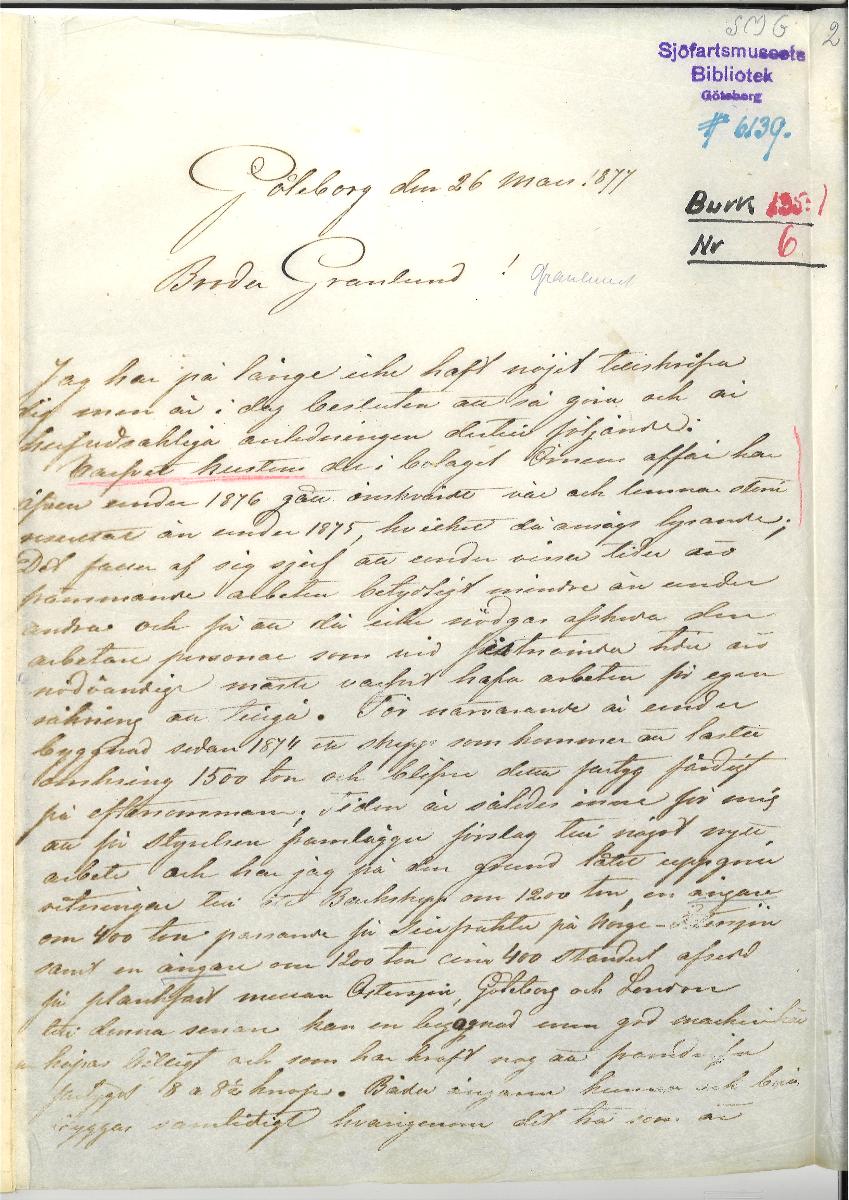 SMG
2
Sjöfartsmuseets
Bibliotek
Göteborg
# 6139.
Burk 135:1
Nr 6
Göteborg den 26 Mars 1877
Broder Granlund ! Granlund
Jag har på länge icke haft nöjet tillskrifva
dig men är i dag besluten att så göra och är
hufvudsakliga anledningen dertill följande:
Varfvet Kusten der i bolaget Ömens affär har
äfven under 1876 gått önskvärdt väl och lemnar större
resultat än under 1875, hvilket då ansågs lysande;
Det faller af sig sjelf att under vissa tider äro
främmande arbeten betydligt mindre än under
andra och för att då icke nödgas afskeda den
arbetare personal som vid tider äro
nödvändige måste varfvet hafva arbeten för egen
räkning att tillgå. För närvarande är under
byggnad sedan 1874 ett skepp som kommer att lasta
omkring 1500 ton och blifver detta fartyg färdigt
på eftersommaren; Tiden är således inne för mig
att för Styrelsen framlägga förslag till något nytt
arbete och har jag på den grund låtit uppgöra
ritningar till ett Barkskepp om 1200 ton, en ångare
om 400 ton passande för på Norge - Östersjön
samt en ångare om 1200 ton circa 400 standert afsedd
för plankfart mellan Östersjön, Göteborg och London
till denna senare kan en begagnad men god machin
köpas billigt och som har kraft nog att framdrifva
fartyget 8 a 8½ knop. Båda ångarne kunna och böra
byggas samtidigt hvarigenom det trä som är